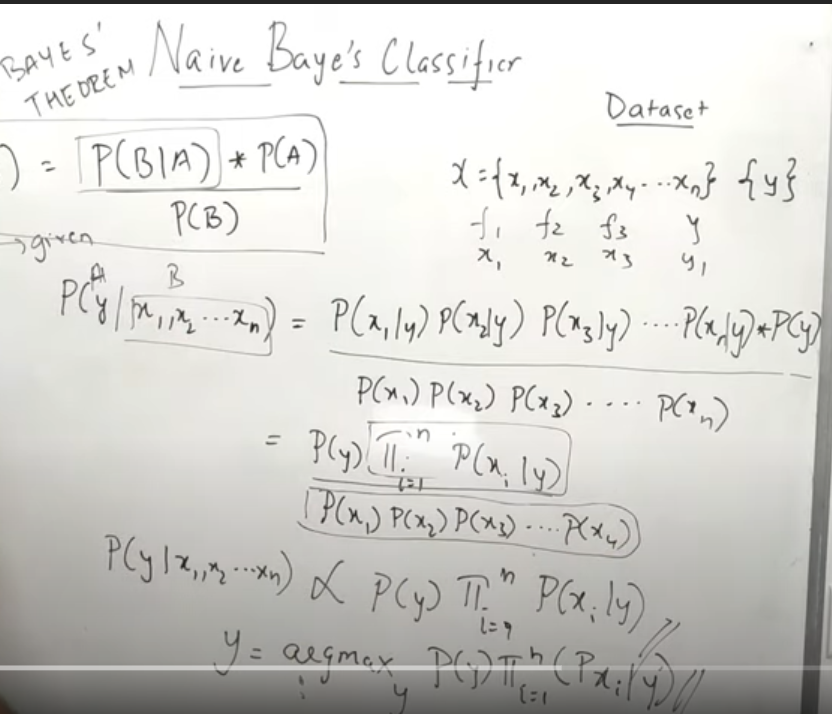 BAYES'
THEOREM
Naive Baye's Classifier
Dataset
) = P(B|A) * P(A)
P(B)
→ given
X = {x₁, x₂, x₃, x₄ ... xₙ} {y}
f₁ f₂ f₃ y
x₁ x₂ x₃ y₁
A B
P(y | x₁, x₂ ... xₙ) = P(x₁|y) P(x₂|y) P(x₃|y) .... P(xₙ|y) * P(y)
P(x₁) P(x₂) P(x₃) .... P(xₙ)
= P(y) ∏ᵢ₌₁ⁿ P(xᵢ|y)
P(x₁) P(x₂) P(x₃) .... P(x₄)
P(y | x₁, x₂ ... xₙ) ∝ P(y) ∏ᵢ₌₁ⁿ P(xᵢ|y)
y = argmax y P(y) ∏ᵢ₌₁ⁿ (Pxᵢ|y)